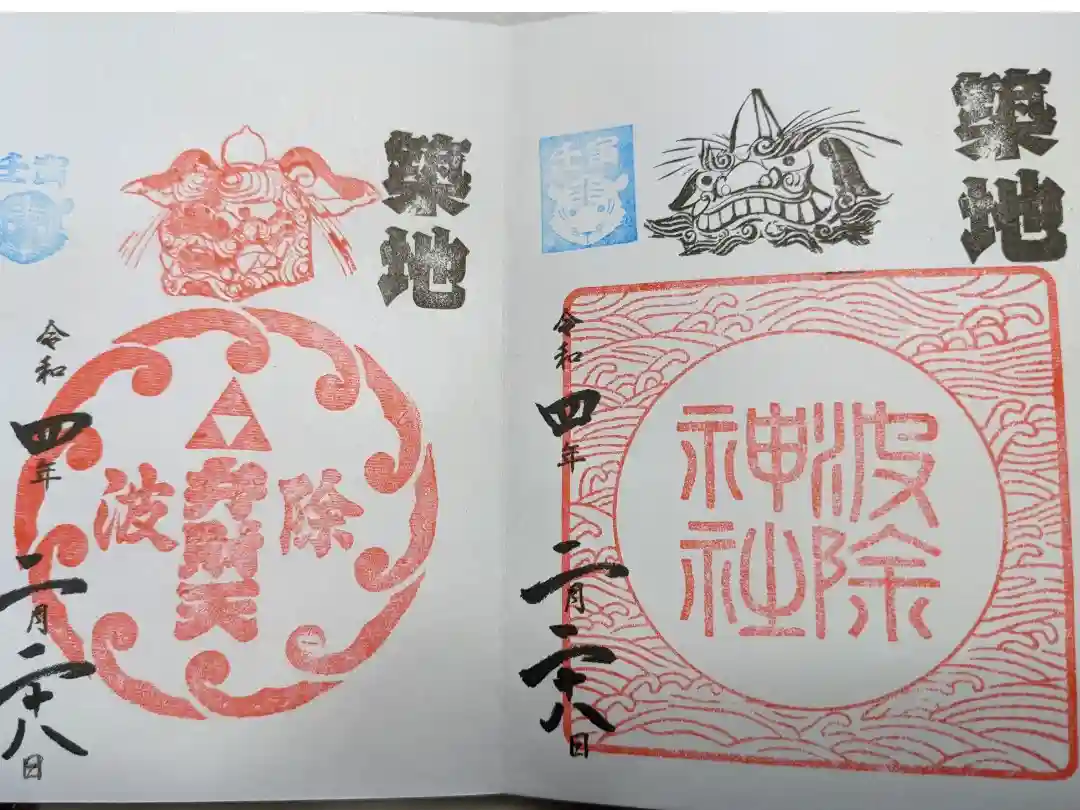 築地
壬寅
波除
神社
令和四年二月二十八日
築地
壬寅
波除
弁財天
令和四年二月二十八日